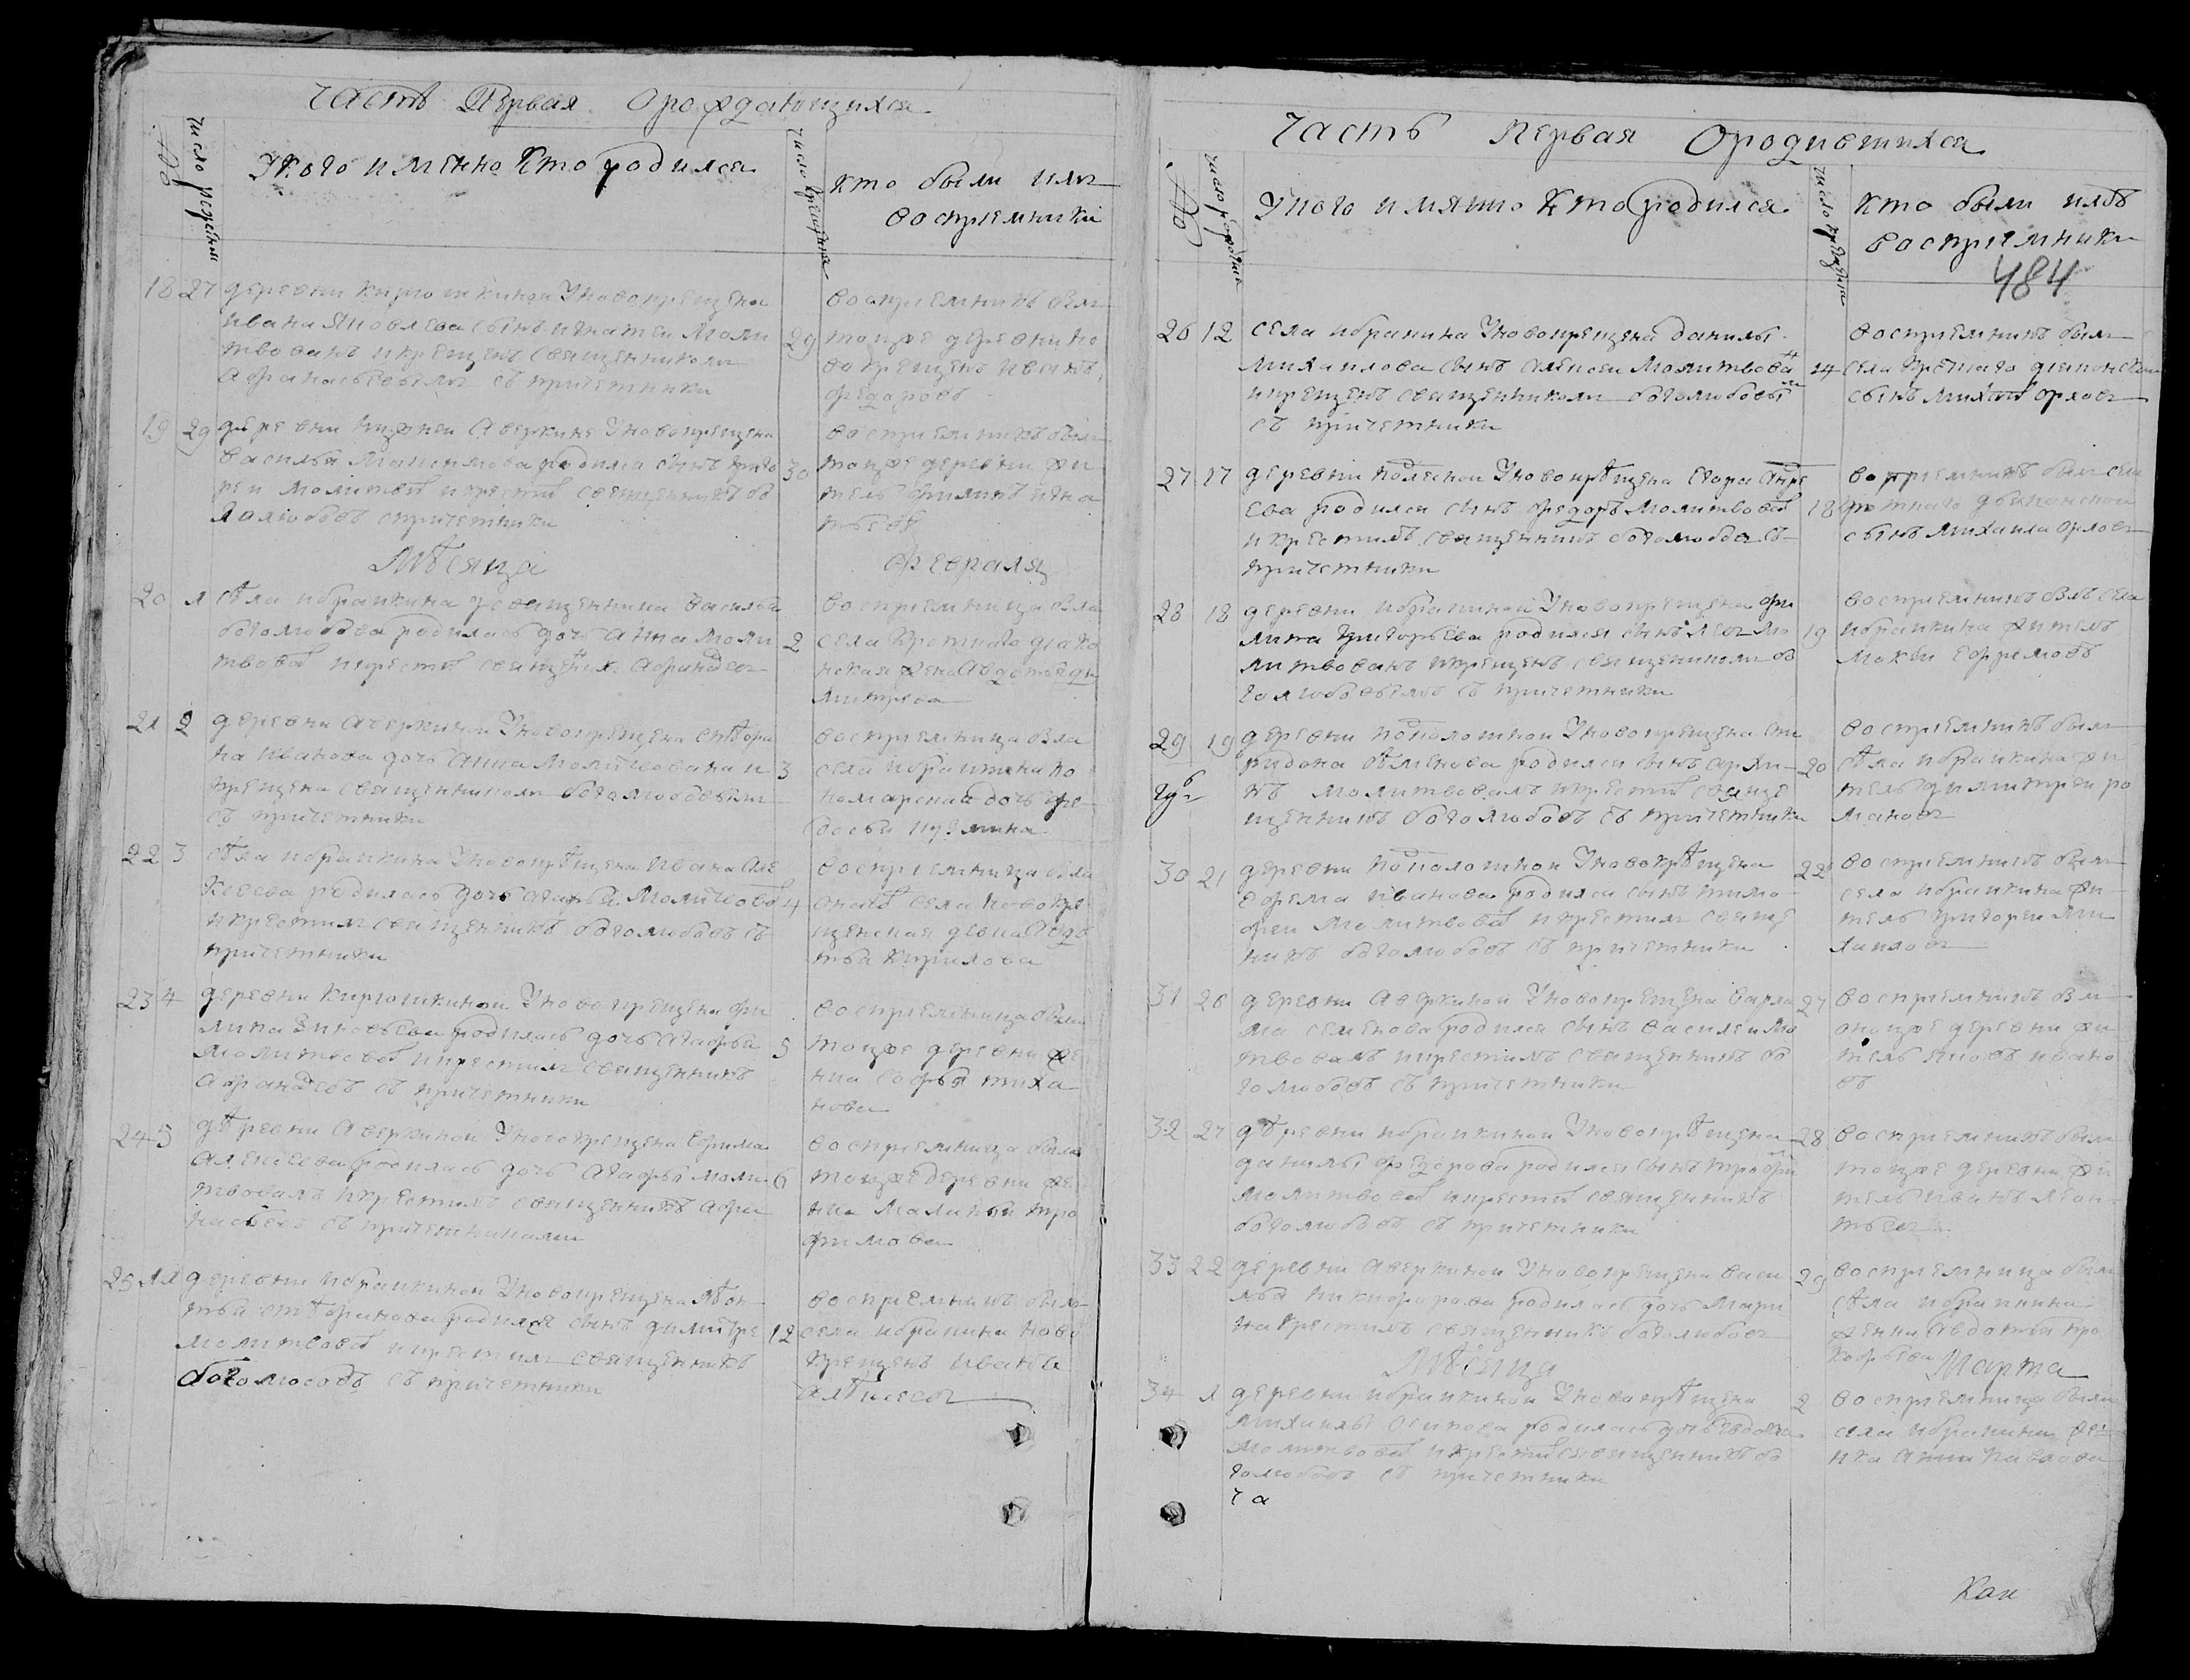 Часть Первая Ораждающихся
№
число рождения
Укого имянно Кто родился
число крещения
кто были или
восприемники
18 27 деревни Киргошкиной Уновокрещена
Ивана Яковлева сынъ Игнатеи Моли
твованъ и крещенъ священникомъ
Афанасьевымъ съ причетники
29 восприемникъ былъ
тоцже деревни но
вокрещенъ Иванъ
Федоровъ
19 29 деревни Нижней Аверкине Уновокрещена
Василья Максимова родился сынъ Григо
реи молитвов и крестил священникъ бо
голюбовъ спричетники
30 восприемникъ былъ
тоцже деревни жи
тель Филипъ Игна
тьевъ
Мѣсяца Февраля
20 1 сѣла Ибраикина Усвященника Василья
боголюбова родилась дочь Анна моли
твовал и крестил священник Афанасев
2 восприемница была
села Кроткаго дьяко
нская жена Авдотья ди
митрева
21 2 деревни Аверкиной Уновокрещена
на Иванова дочь Анна Молитвована и
крещена священникомъ боголюбовымъ
съ причетники
3 восприемница была
села Ибраикина по
номарская дочь Фе
досья
22 3 сѣла Ибраикина Уновокрѣщена Ивана Але
ксеева родилась дочь Агафья Молитвова
и крестил священникъ боголюбовъ съ
причетники
4 восприемница была
онаго села новокре
щенская девка
Кирилова
23 4 деревни Киргошкиной Уновокрещена Фи
липа Зиновьева родилась дочь Агафья
молитвовал и крестил священникъ
Афанасевъ съ причетники
5 восприемница была
тоцже деревни же
нка Софья Тиха
нова
24 5 дѣревни Аверкиной Уновокрещена Ефима
Алексеева родилась дочь Агафья моли
твовалъ и крестилъ священникъ Афа
насьевъ съ причетниками
6 восприемница была
тоцже деревни же
нка Маланья Тро
фимова
25 11 деревни Ибраикиной Уновокрещена Лѣон
тья родился сынъ Димитре
молитвовал и крестил священникъ
боголюбовъ съ причетники
12 восприемникъ былъ
села Ибраикина ново
крещенъ Иванъ
Алѣксеевъ
Часть Первая Ородившихся
№
число рождения
Укого имянно Кто родился
число крещения
Кто были илъ
восприемники
484
26 12 села Ибраикина Уновокрещена Данилы
Михаилова сынъ Алексеи Молитвован
и крещенъ священникомъ боголюбовым
съ причетники
14 восприемникъ былъ
села Кроткаго дьяконскои
сынъ Михаил Орловъ
27 17 деревни Полянои Уновокрѣщена Егора Андре
ева родился сынъ Федоръ Молитвовал
и крестилъ священникъ боголюбовъ съ
причетники
18 восприемникъ былъ села
Кроткаго дьяконскои
сынъ Михаила Орловъ
28 18 деревни Ибраикинои Уновокрещена Фи
липа Григорьева родился сынъ Левъ мо
литвованъ и крещенъ священникомъ бо
голюбовымъ съ причетники
19 восприемникъ былъ села
Ибраикина житель
Мокеи Ефремовъ
29 19 деревни Пополошнои Уновокрещена Спи
ридона Сѣменова родился сынъ Архи
пъ молитвовалъ и крестил свяще
щенникъ боголюбовъ съ причетники
20 восприемникъ былъ
сѣла Ибраикина жи
тель Димитреи Ро
мановъ
30 21 деревни Пополошнои Уновокрѣщена
Ефема Иванова родился сынъ Тимо
феи молитвовал и крестилъ свяще
никъ боголюбовъ съ причетники
22 восприемникъ былъ
села Ибраикина жи
тель Григореи Ми
хаиловъ
31 26 деревни Аверкиной Уновокрещена Варла
ма Семенова родился сынъ Василеи мо
твовалъ и крестилъ священникъ бо
голюбовъ съ причетники
27 восприемникъ был
оноцже деревни жи
тель Яковъ Ивано
въ
32 27 дѣревни Ибраикинои Уновокрѣщена
Данилы Федорова родился сынъ Трофим
молитвовал и крестил священникъ
боголюбовъ съ причетники
28 восприемникъ былъ
тоцже деревни жи
тель Иванъ Леон
тьевъ
33 22 деревни Аверкиной Уновокрещена Васи
лья Никифорова родилась дочь Мари
на крестилъ священникъ боголюбовъ
29 восприемница была
сѣла Ибраикина
женка Авдотья Про
кофьева
Мѣсяца Марта
34 1 деревни Ибраикинои Уновокрѣщена
Михаилы Осипова родилась дочь Евдокия
Молитвовал и крестил священникъ бо
голюбовъ съ причетники
2 восприемница была
села Ибраикина же
нка Анна Павлова
ча
Как